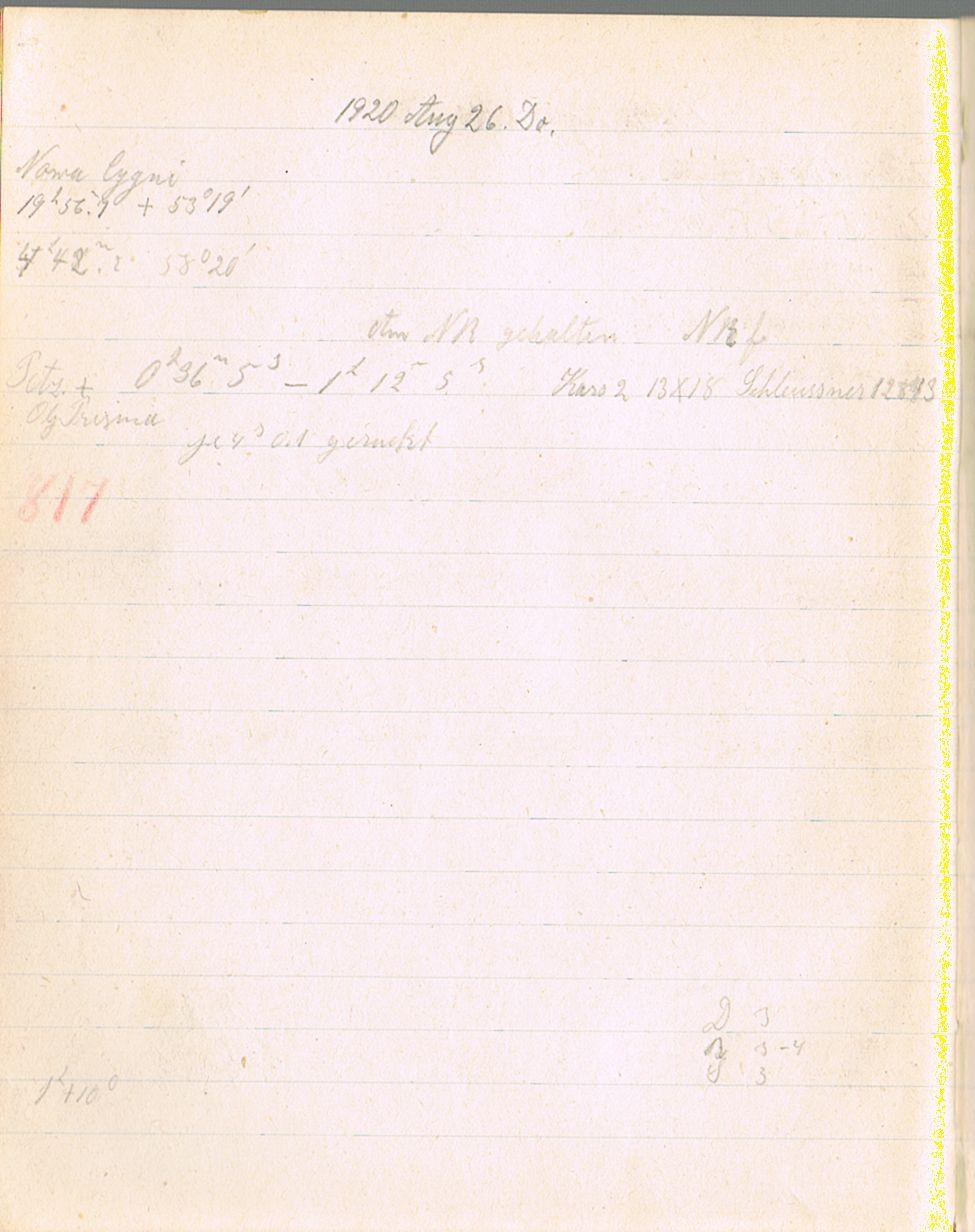 1920 Aug 26. Do.
Nova Cygni
19h 56.m9 + 53°19'
4h 42m.2 58°20'
Am NR gehalten NR f
Petz. + 0h 36m 5s – 1h 12m 5s Kass 2 13X18 Schleussner
Obj Prisma
je 4s 0.1 gerückt
817
D 3
3-4
G 3
1h +10°